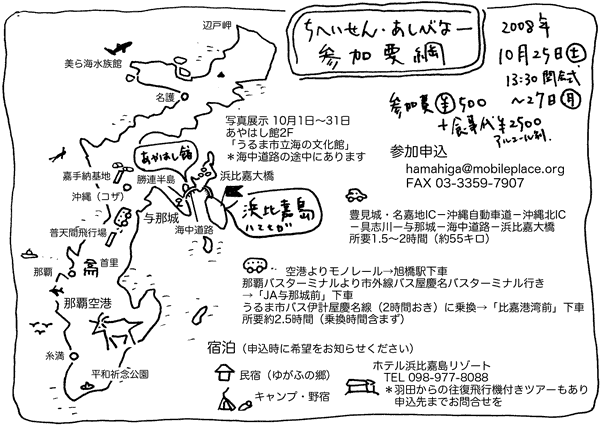 ちへいせん・あしびなー
参加要綱
2008年
10月25日(土)
13:30開会式
〜27日(月)
参加費(¥)500
+食事代¥2500
アルコール別
辺戸岬
美ら海水族館
名護
写真展示 10月1日〜31日
あやはし館2F
「うるま市立海の文化館」
＊海中道路の途中にあります
あやはし館
嘉手納基地
勝連半島
浜比嘉大橋
沖縄（コザ）
与那城
海中道路
浜比嘉島
ハマヒガ
普天間飛行場
那覇
首里
那覇空港
糸満
平和祈念公園
参加申込
hamahiga@mobileplace.org
FAX 03-3359-7907
豊見城・名嘉地IC－沖縄自動車道－沖縄北IC
－具志川－与那城－海中道路－浜比嘉大橋
所要1.5〜2時間（約55キロ）
空港よりモノレール→旭橋駅下車
那覇バスターミナルより市外線バス屋慶名バスターミナル行き
→「JA与那城前」下車
うるま市バス伊計屋慶名線（2時間おき）に乗換→「比嘉港湾前」下車
所要約2.5時間（乗換時間含まず）
宿泊（申込時に希望をお知らせください）
民宿（ゆがふの郷）
キャンプ・野宿
ホテル浜比嘉島リゾート
TEL 098-977-8088
＊羽田からの往復飛行機付きツアーもあり
申込先までお問合せを